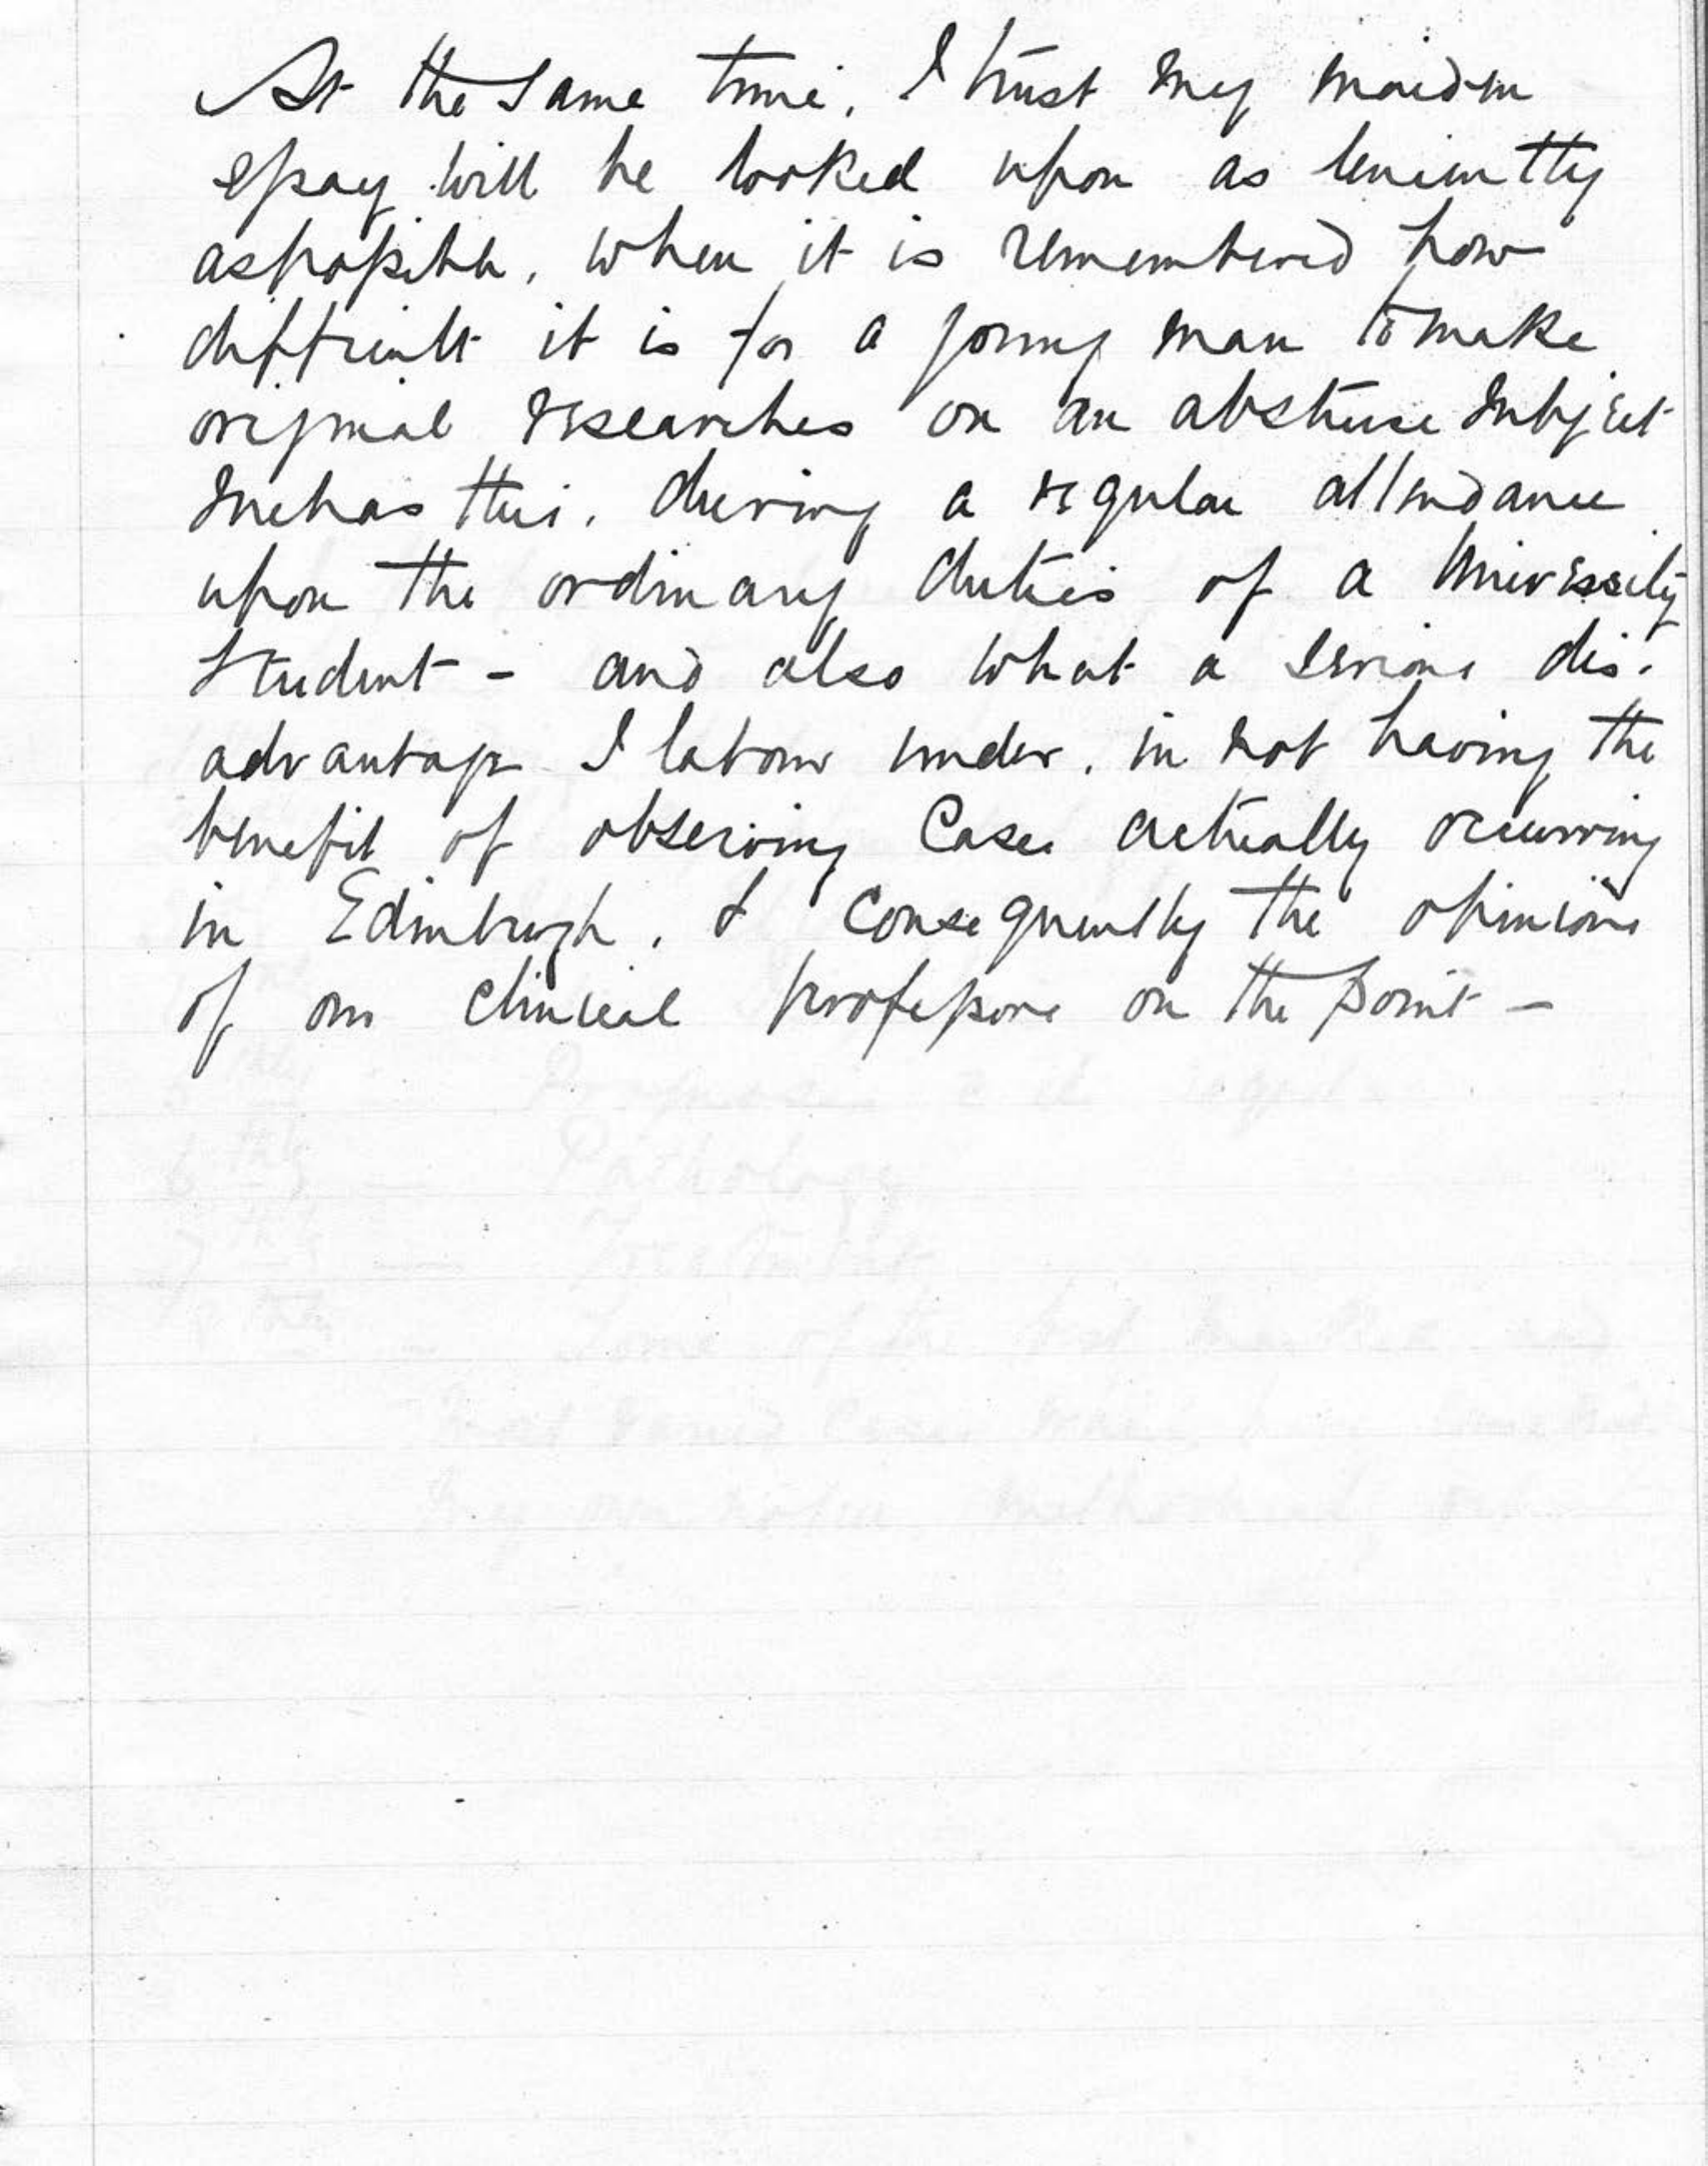 At the same time, I trust my maiden
essay will be looked upon as leniently
as possible, when it is remembered how
difficult it is for a young man to make
original researches on an abstruse subject
such as this, during a regular attendance
upon the ordinary duties of a University
Student - and also what a serious dis-
advantage I labour under, in not having the
benefit of observing Cases actually occurring
in Edinburgh, & consequently the opinions
of our clinical professors on the point -
Pathology
Treatment